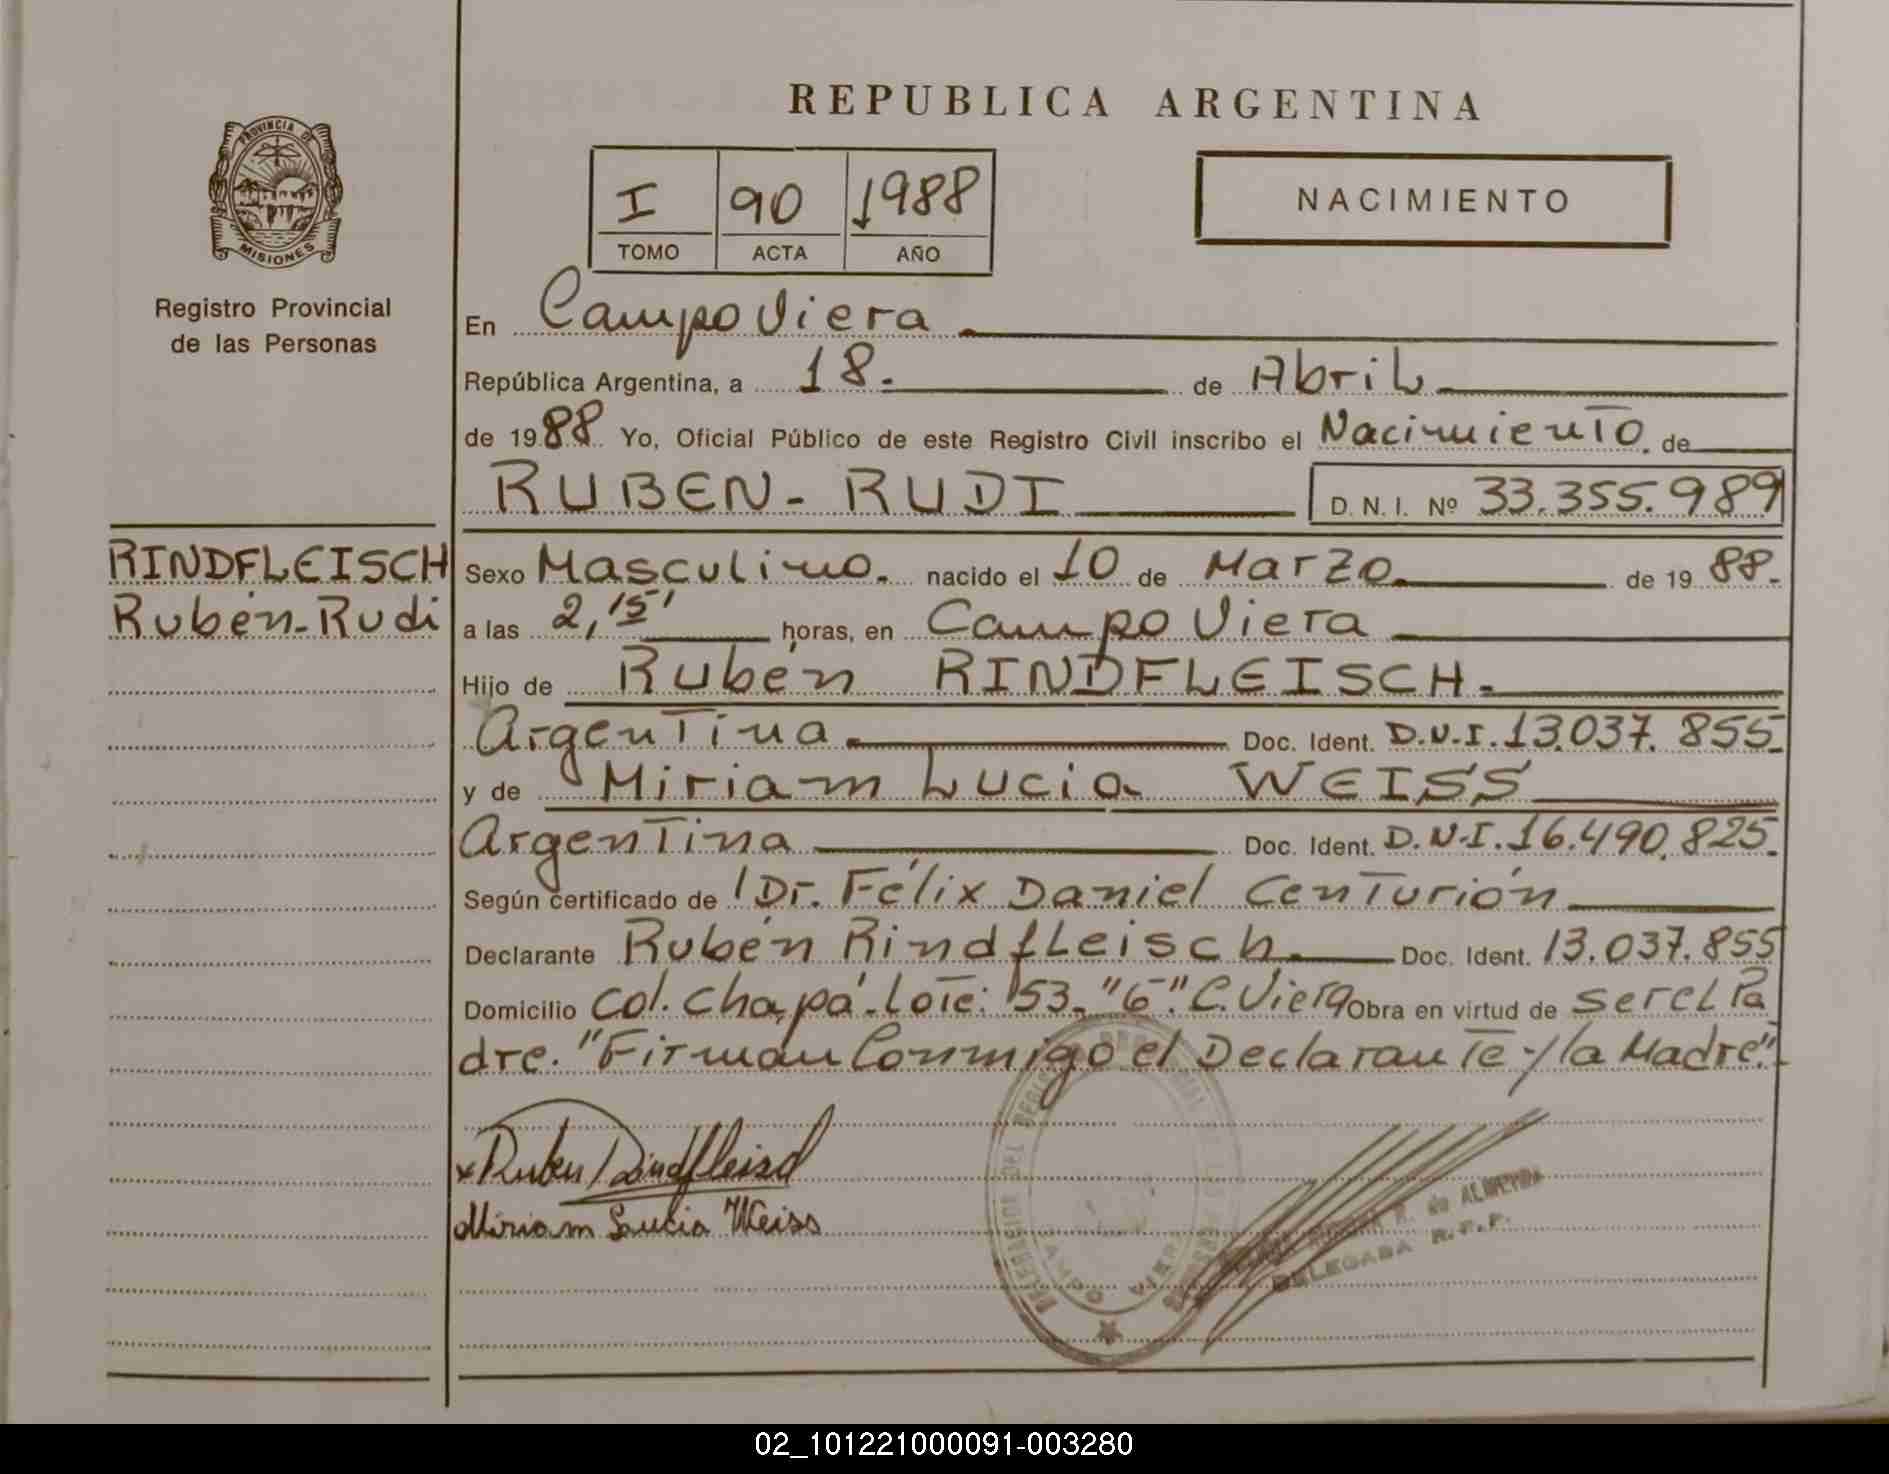 REPUBLICA ARGENTINA
PROVINCIA DE
MISIONES
Registro Provincial
de las Personas
I 90 1988
TOMO ACTA AÑO
NACIMIENTO
En Campo Viera
República Argentina, a 18. de Abril
de 1988. Yo, Oficial Público de este Registro Civil inscribo el Nacimiento de
RUBEN-RUDI D. N. I. Nº 33.355.989
RINDFLEISCH
Rubén-Rudi
Sexo Masculino. nacido el 10 de Marzo de 1988.
a las 2,15' horas, en Campo Viera
Hijo de Rubén RINDFLEISCH.
Argentina Doc. Ident. D.N.I. 13.037.855.
y de Miriam Lucia WEISS
Argentina Doc. Ident. D.N.I. 16.490.825.
Según certificado de Dr. Félix Daniel Centurión
Declarante Rubén Rindfleisch. Doc. Ident. 13.037.855
Domicilio Col. Chapá-Lote: 53-"6". C. Viera Obra en virtud de ser el Pa
dre. "Firman Conmigo el Declarante y la Madre".
x Ruben Rindfleisch
Miriam Lucia Weiss
DEL
CAMPO VIERA
R. de ALMEYDA
DELEGADA R.P.P.
02_101221000091-003280